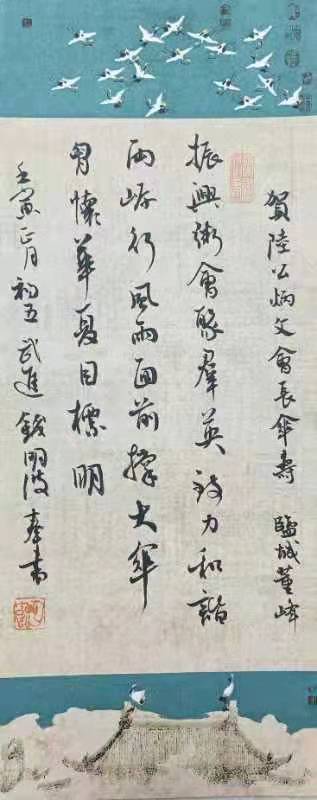 賀陸公炳文會長傘壽 鹽城董峰
振興鄉會聚羣英致力和諧
兩岸行風雨面前撑大傘
胸懷華夏目標明
壬寅正月初五武進錢明波奉書